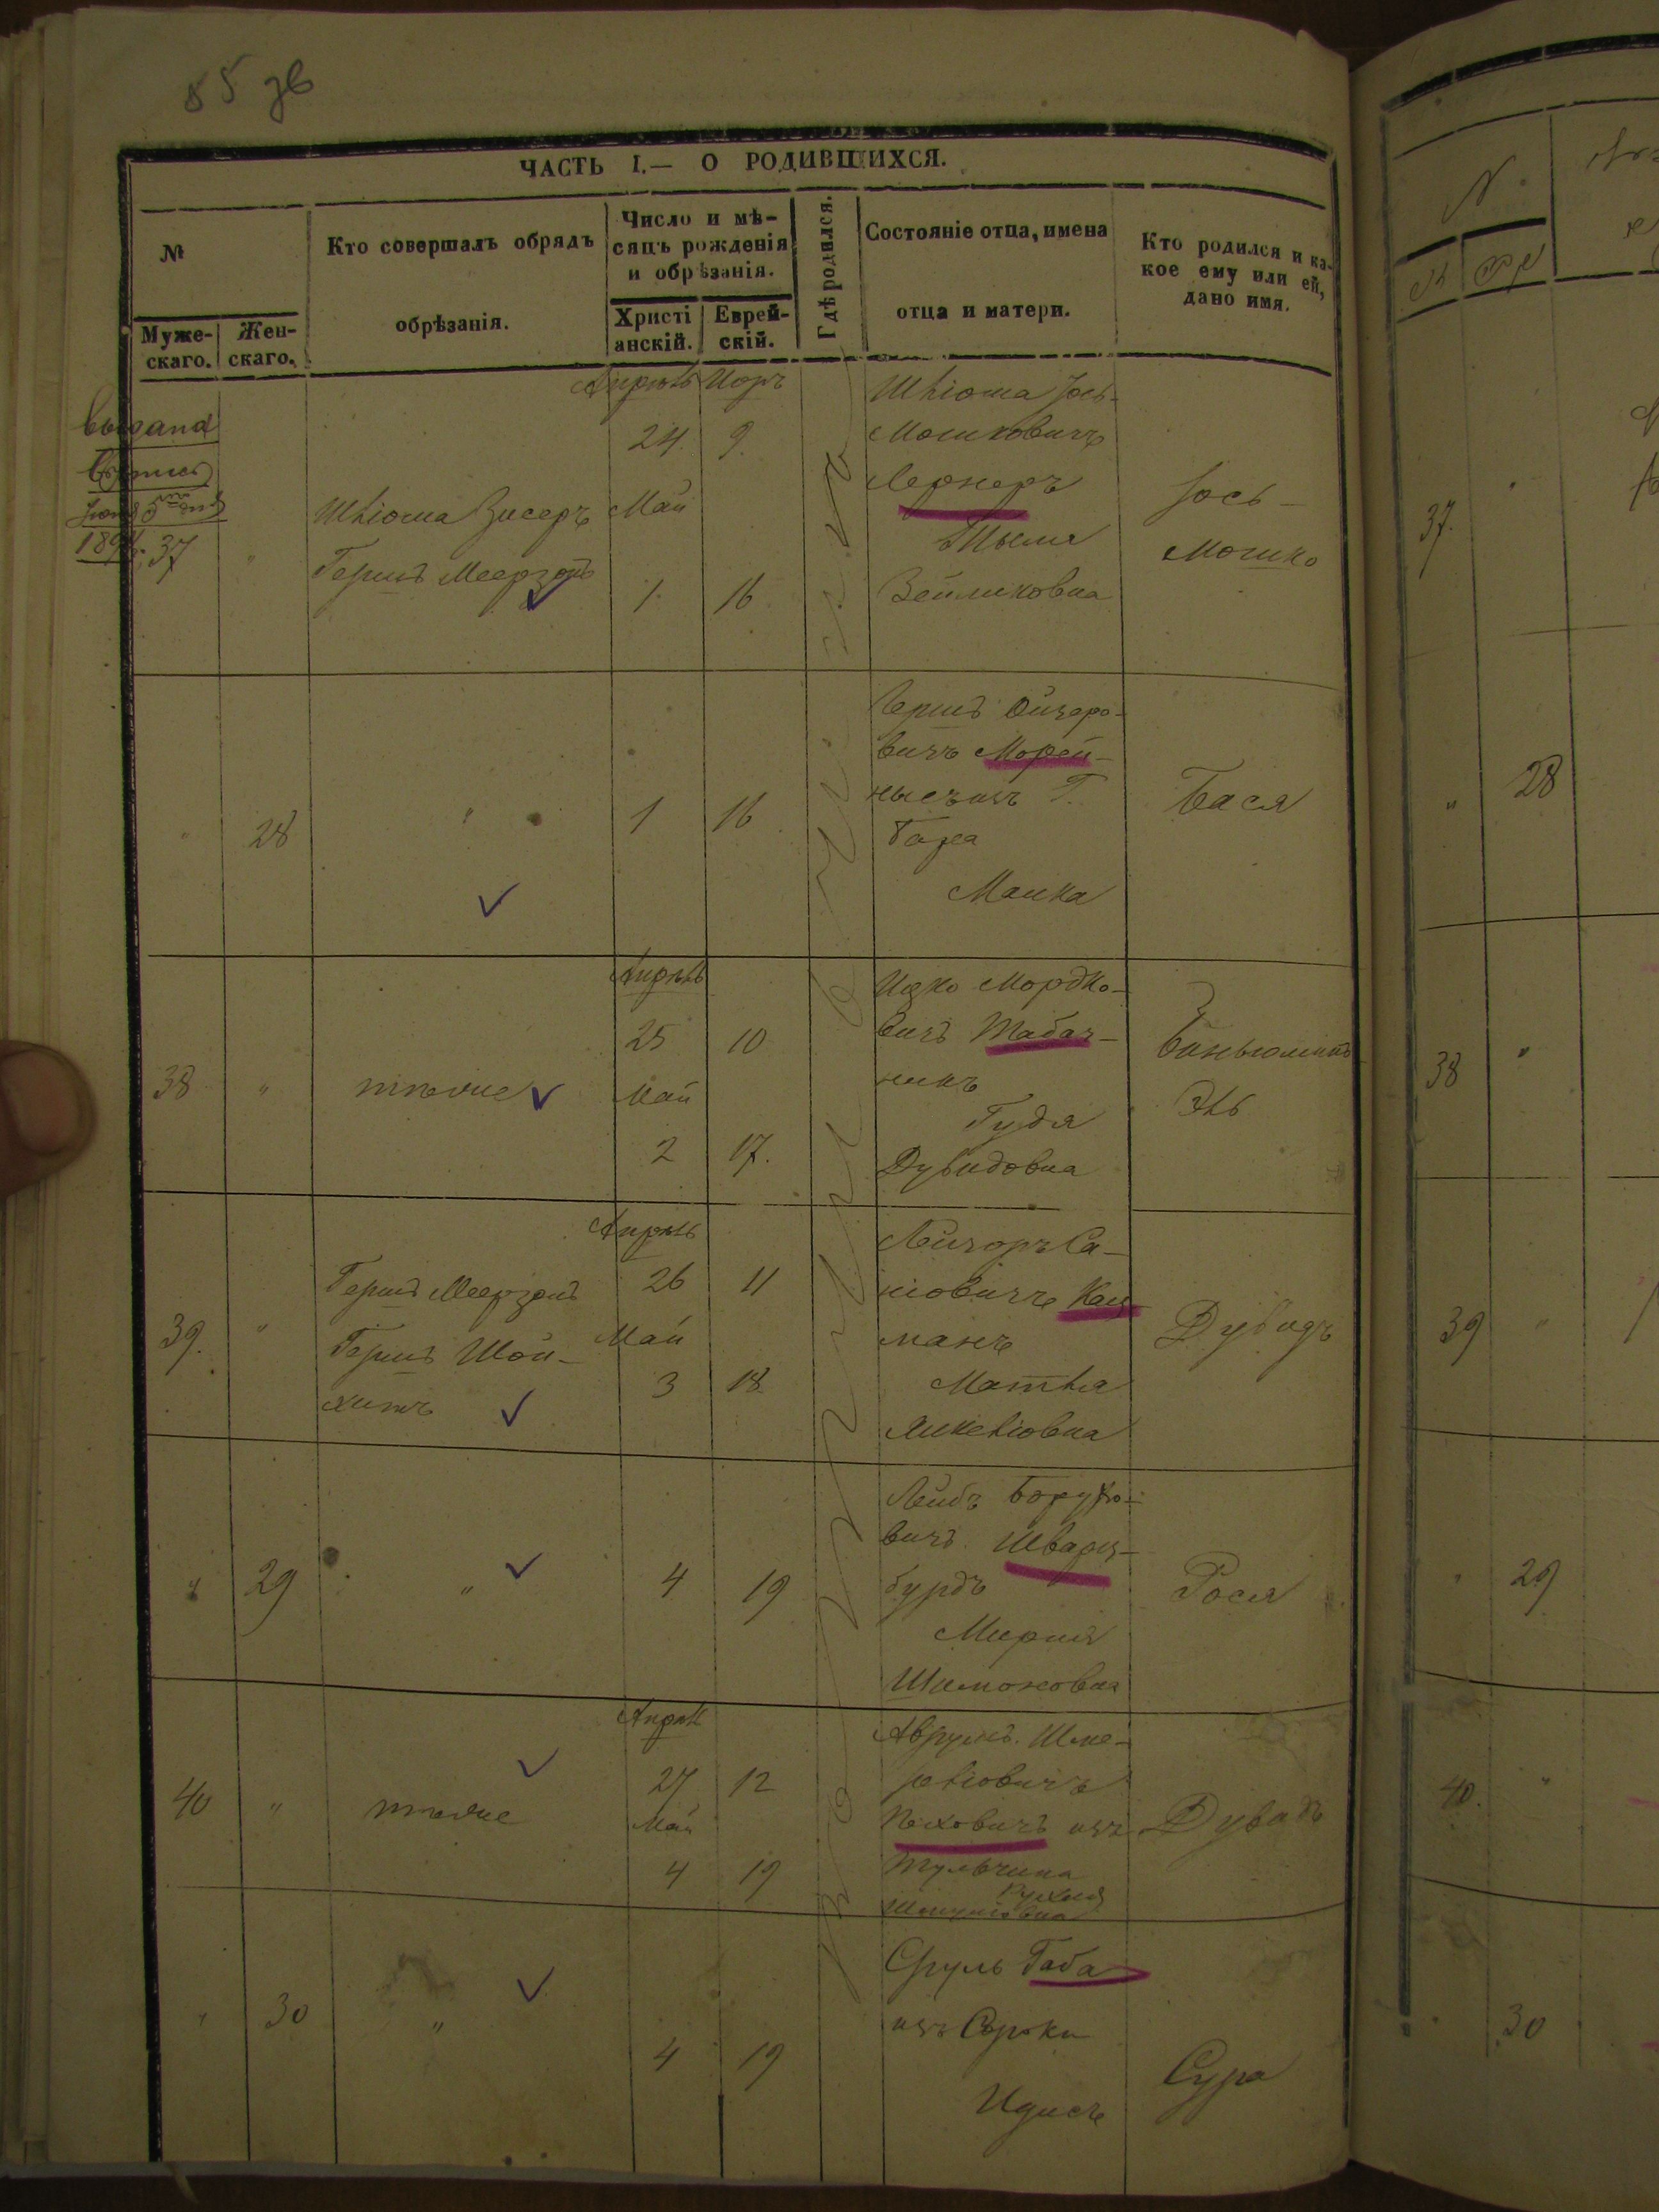 85 зв
ЧАСТЬ I.— О РОДИВШИХСЯ.
№
Муже-
скаго.
Жен-
скаго.
Кто совершалъ обрядъ
обрѣзанія.
Число и мѣ-
сяцъ рожденія
и обрѣзанія.
Христі
анскій.
Еврей-
скій.
Гдѣ родился.
Состояніе отца, имена
отца и матери.
Кто родился и ка-
кое ему или ей,
дано имя.
37
Шліома Зисеръ
Гершъ Меерзонъ
Апрѣль Іоръ
24 9.
Май
1. 16
Шліома Іось-
Мошковичъ
Лернеръ
Тыля
Зейликовна
Іось-
Мошко
" 28 "
1 16
Гершъ Ойзеро-
вичъ Морей-
Маика
Бася
38 " тѣже
Апрѣль
25 10
Май
2 17.
Ицко Мордко-
вичъ Табач-
никъ
Гудя
Дувидовна
Биньюминъ
Эль
39. "
Гершъ Меерзонъ
Гершъ Шой-
хитъ
Апрѣль
26 11
Май
3 18.
Лейзоръ Са-
Кац-
манъ
Матля
Янкеліовна
Дувидъ
" 29 "
4 19
Лейбъ Борухо-
вичъ Шварц-
бурдъ
Мирия
Шимоновна
Рося
40 " тѣже
Апрѣл
27 12
Май
4 19
Аврумъ Шме-
реліовичъ
изъ
Тульчина
Рухля
Шмуліовна
Дувидъ
" 30 "
4 19
Сруль Габа
изъ Сороки
Идисъ
Сура
37.
" 28
38 "
39 "
" 29
40. "
30